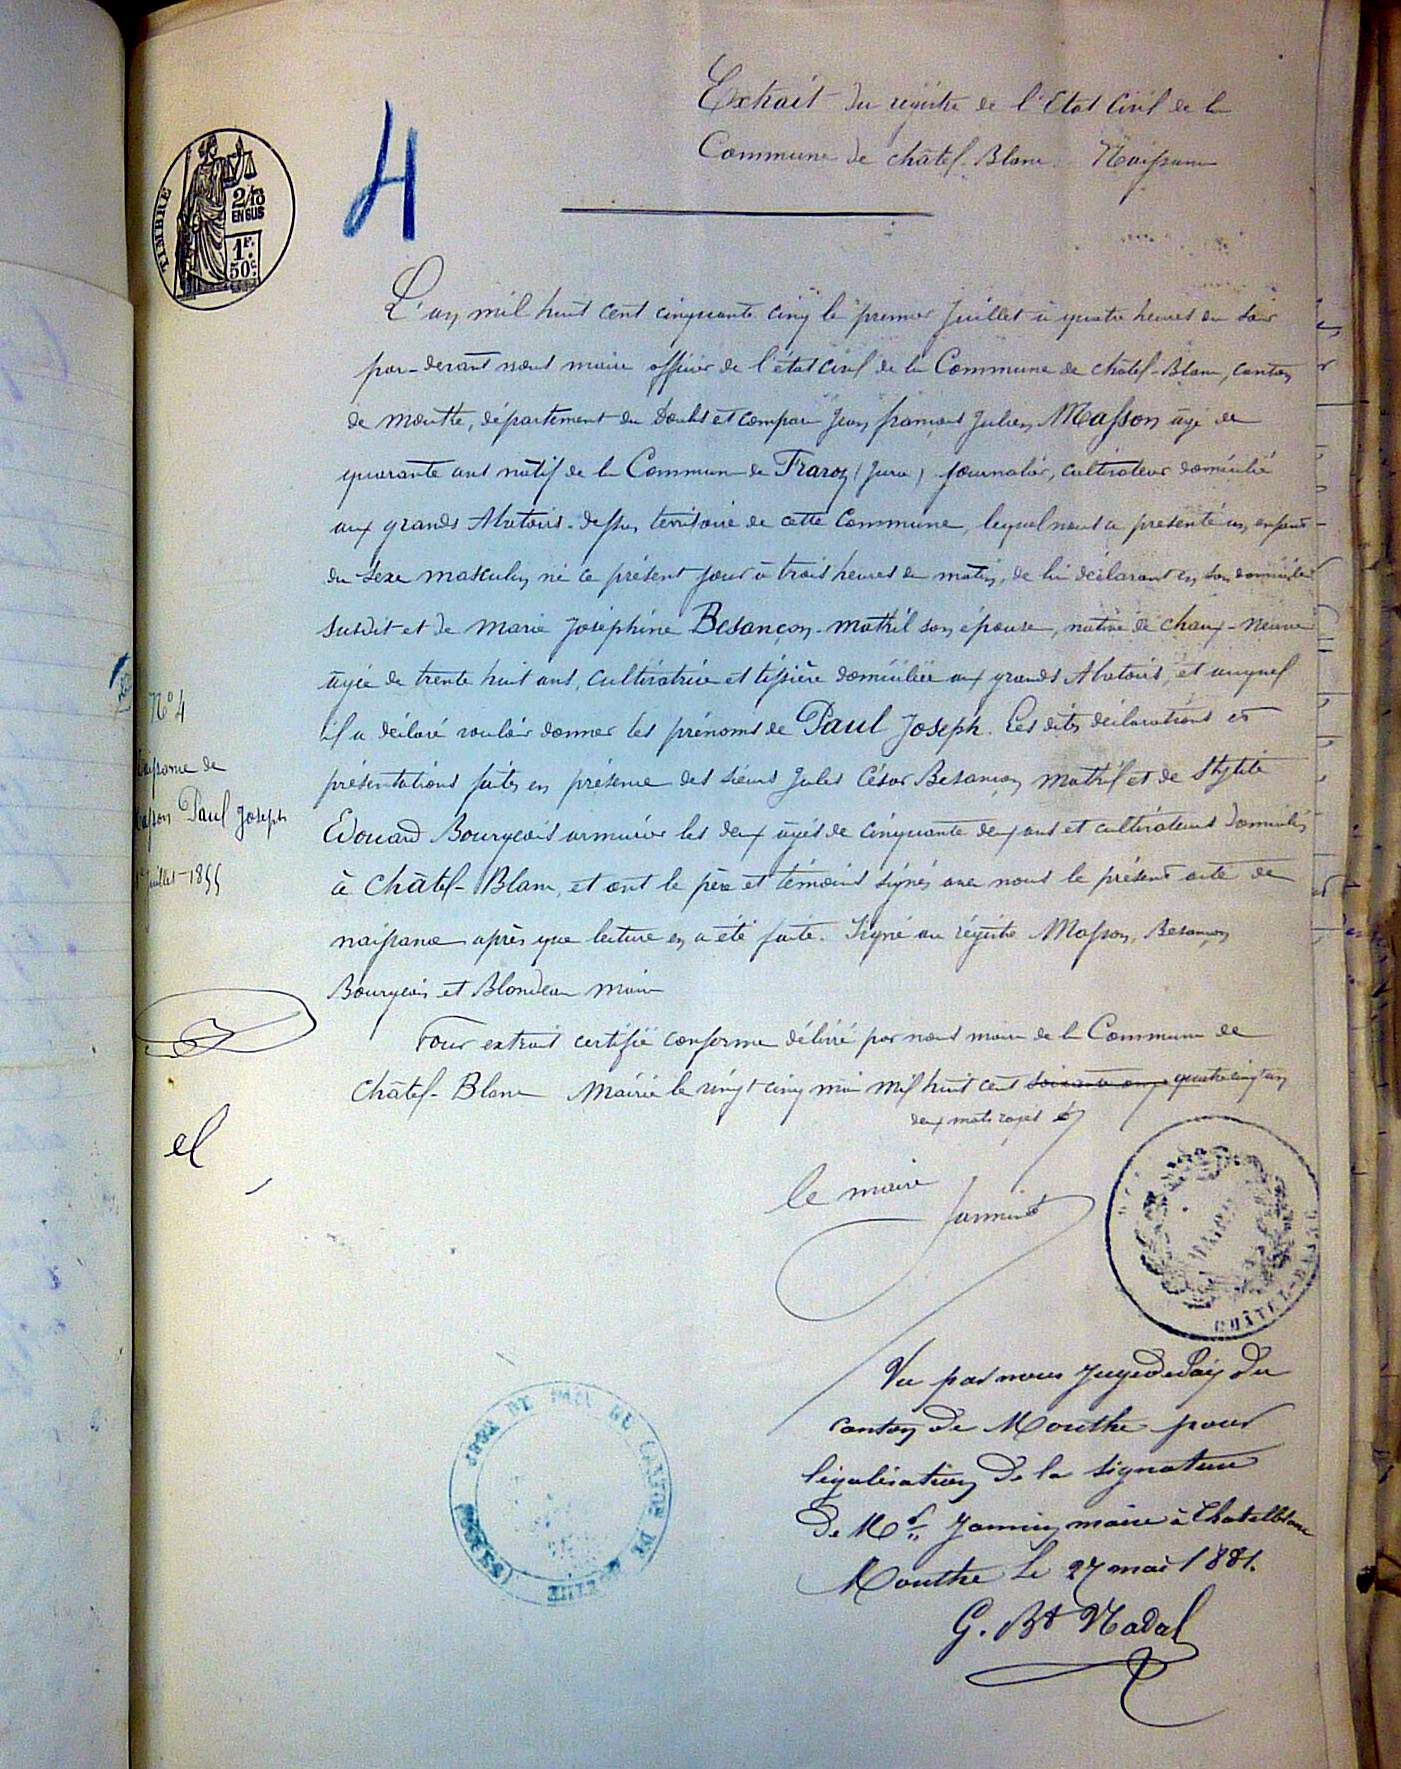 Extrait du régistre de l'Etat Civil de la
Commune de châtel-Blanc. Naissance
TIMBRE
2/10
EN SUS
1F.
50c.
4
L'an mil huit cent cinquante cinq le premier Juillet à quatre heures du soir
par-devant nous maire officier de l'état civil de la Commune de châtel-Blanc, canton
de mouthe, département du Doubs est comparu Jean françois Julien Masson âgé de
quarante ans natif de la Commune de Fraroz (Jura) journalier, cultivateur domicilié
aux grands Abatoirs-dessus territoire de cette Commune, lequel nous a présenté un enfant
du sexe masculin né ce présent jour à trois heures du matin, de lui déclarant en son domicile
susdit et de marie joséphine Besançon-mathil son épouse, native de chaux-neuve
âgée de trente huit ans, cultivatrice et tissière domiciliée aux grands Abatoirs, et auquel
il a déclaré vouloir donner les prénoms de Paul Joseph. Les dites déclarations et
présentations faites en présence des sieurs Jules César Besançon mathil et de Stylite
Edouard Bourgeois armurier les deux âgés de cinquante deux ans et cultivateurs domiciliés
à Châtel-Blanc, et ont le père et témoins signés avec nous le présent acte de
naissance après que lecture en a été faite. Signé au régistre Masson, Besançon
Bourgeois et Blondeau maire
N° 4
Naissance de
Masson Paul Joseph
1er Juillet 1855
Pour extrait certifié conforme délivré par nous maire de la Commune de
Châtel-Blanc Mairie le vingt cinq mai mil huit cent soixante onze quatre vingt un
deux mots rayés
le maire
Jannin
CHÂTEL-BLANC
Vu par nous Juge de Paix du
canton de Mouthe pour
légalisation de la signature
de Mr Jannin maire à Chatelblanc
Mouthe le 27 mai 1881.
G. Bt Nadal
JUGE DE PAIX DU CANTON DE MOUTHE (DOUBS)